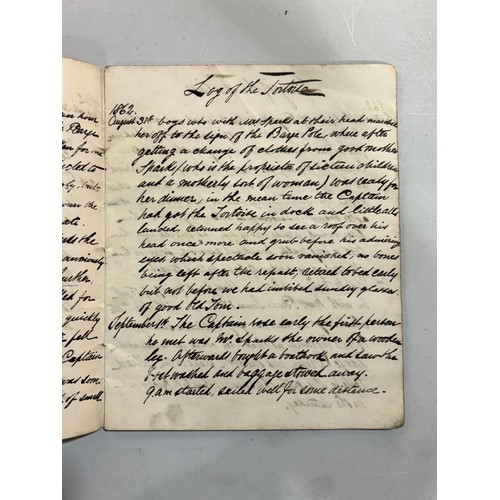 Log of the Tortoise
1862.
August 31st boys who with Mr Sparks at their head marched
her off to the sign of the Barge Pole, where after
getting a change of clothes from good mother
Sparks (who is the proprietor of sixteen children
and a motherly sort of woman) was ready for
her dinner, in the mean time the Captain
had got the Tortoise in dock and
landed, returned happy to see a roof over his
head once more and grub before his admiring
eyes which spectacle soon vanished, no bones
being left after the repast, retired to bed early
but not before we had imbibed sundry glasses
of good Old Tom.
September 1st The Captain rose early the first person
he met was Mr. Sparks the owner of a wooden
leg. Afterward bought a boathook and saw the
boat washed and baggage stowed away.
9 am started, sailed well for some distance.
hour
Barge
for one
to
by, but
over the
the
anxiously
further,
for
quickly
fell
Captain
was soon
of small